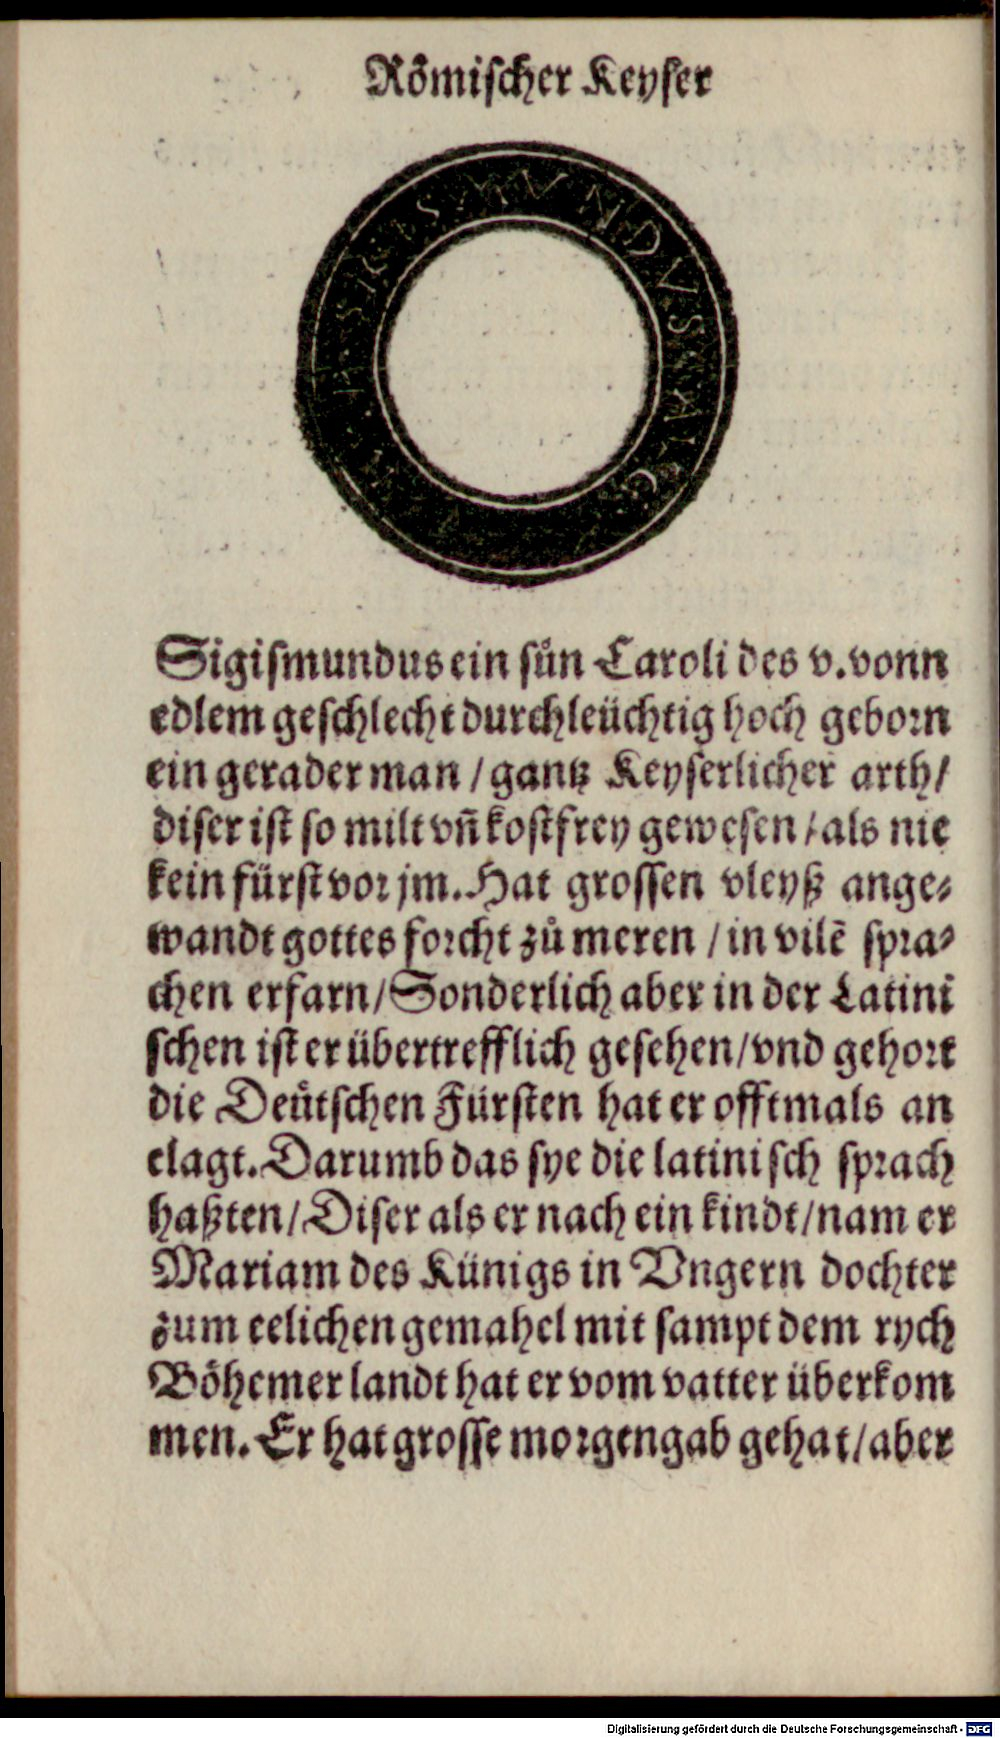 Römischer Keyser
SIGISMVNDVS
Sigiſmundus ein ſün Caroli des v. vonn
edlem geſchlecht durchleüchtig hoch geborn
ein gerader man / gantz Keyſerlicher arth /
diſer iſt ſo milt vñ koſtfrey geweſen / als nie
kein fürſt vor jm. Hat groſſen vleyß ange⸗
wandt gottes forcht zů meren / in vilē ſpra⸗
chen erfarn / Sonderlich aber in der Latini
ſchen iſt er übertrefflich geſehen / vnd gehort
die Deütſchen Fürſten hat er offtmals an
clagt. Darumb das ſye die latiniſch ſprach
haßten / Diſer als er nach ein kindt / nam er
Mariam des Künigs in Vngern dochter
zum eelichen gemahel mit ſampt dem rych
Böhemer landt hat er vom vatter überkom
men. Er hat groſſe morgengab gehat / aber
Digitalisierung gefördert durch die Deutsche Forschungsgemeinschaft - DFG